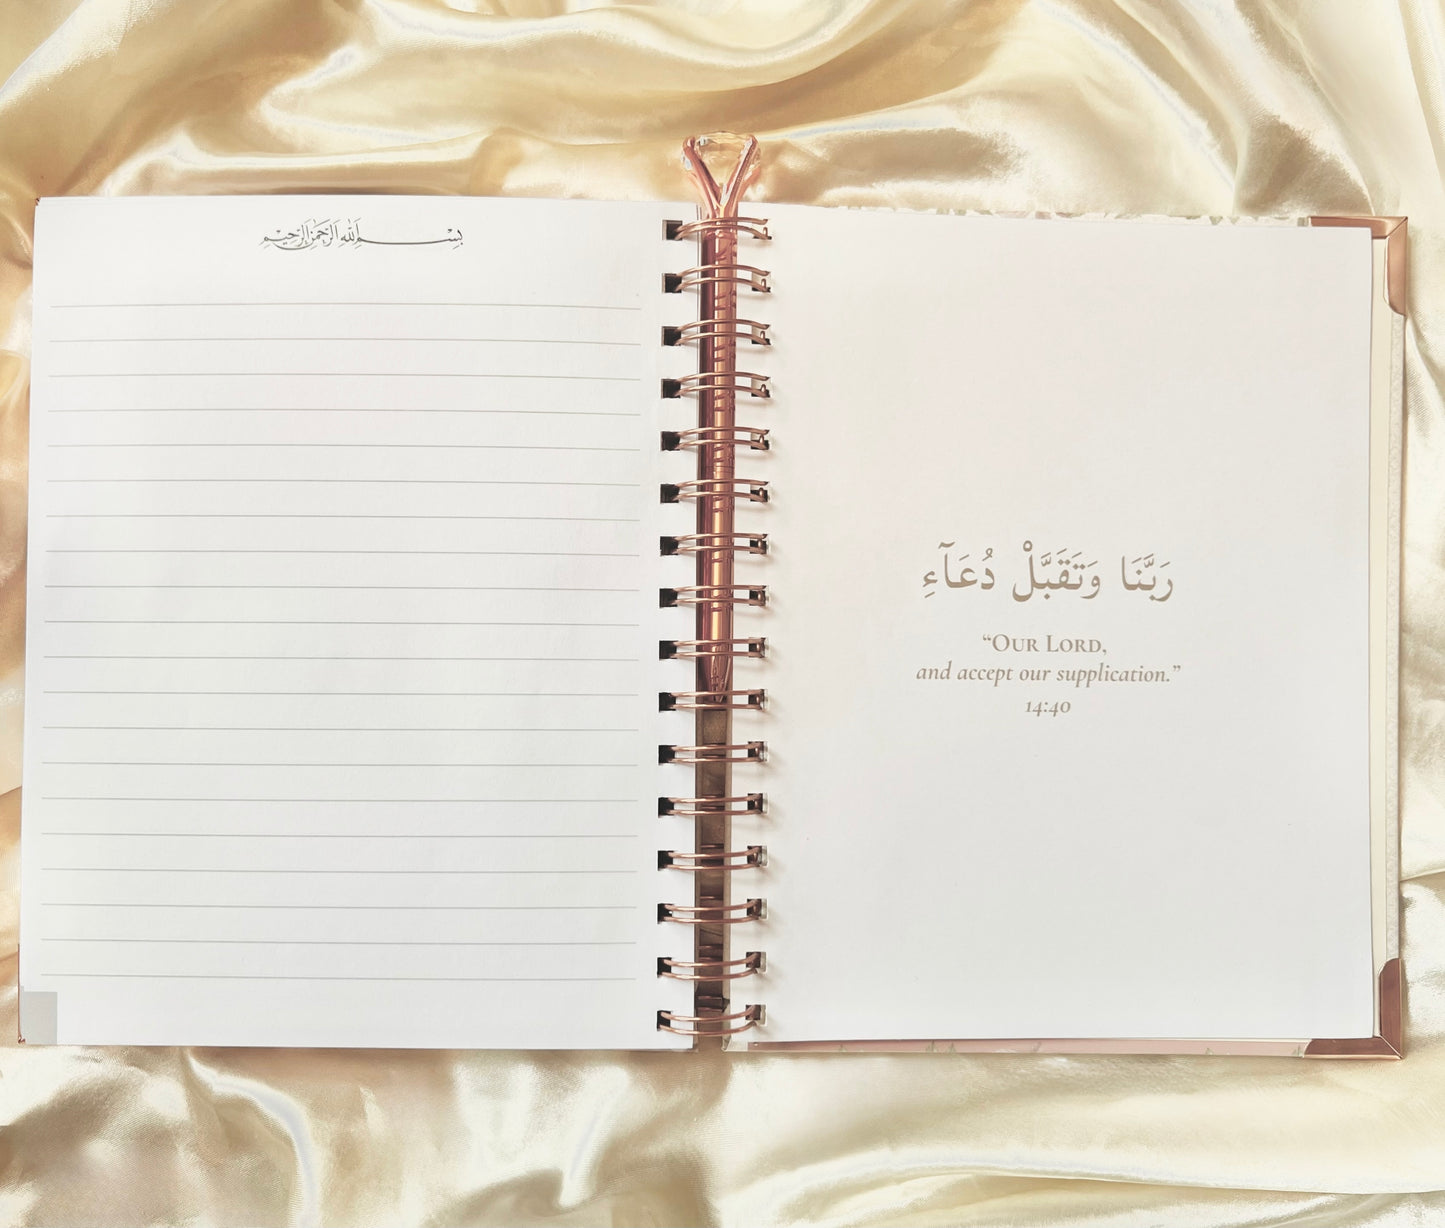 بسم الله الرحمن الرحيم
رَبَّنَا وَتَقَبَّلْ دُعَآءِ
“OUR LORD,
and accept our supplication.”
14:40